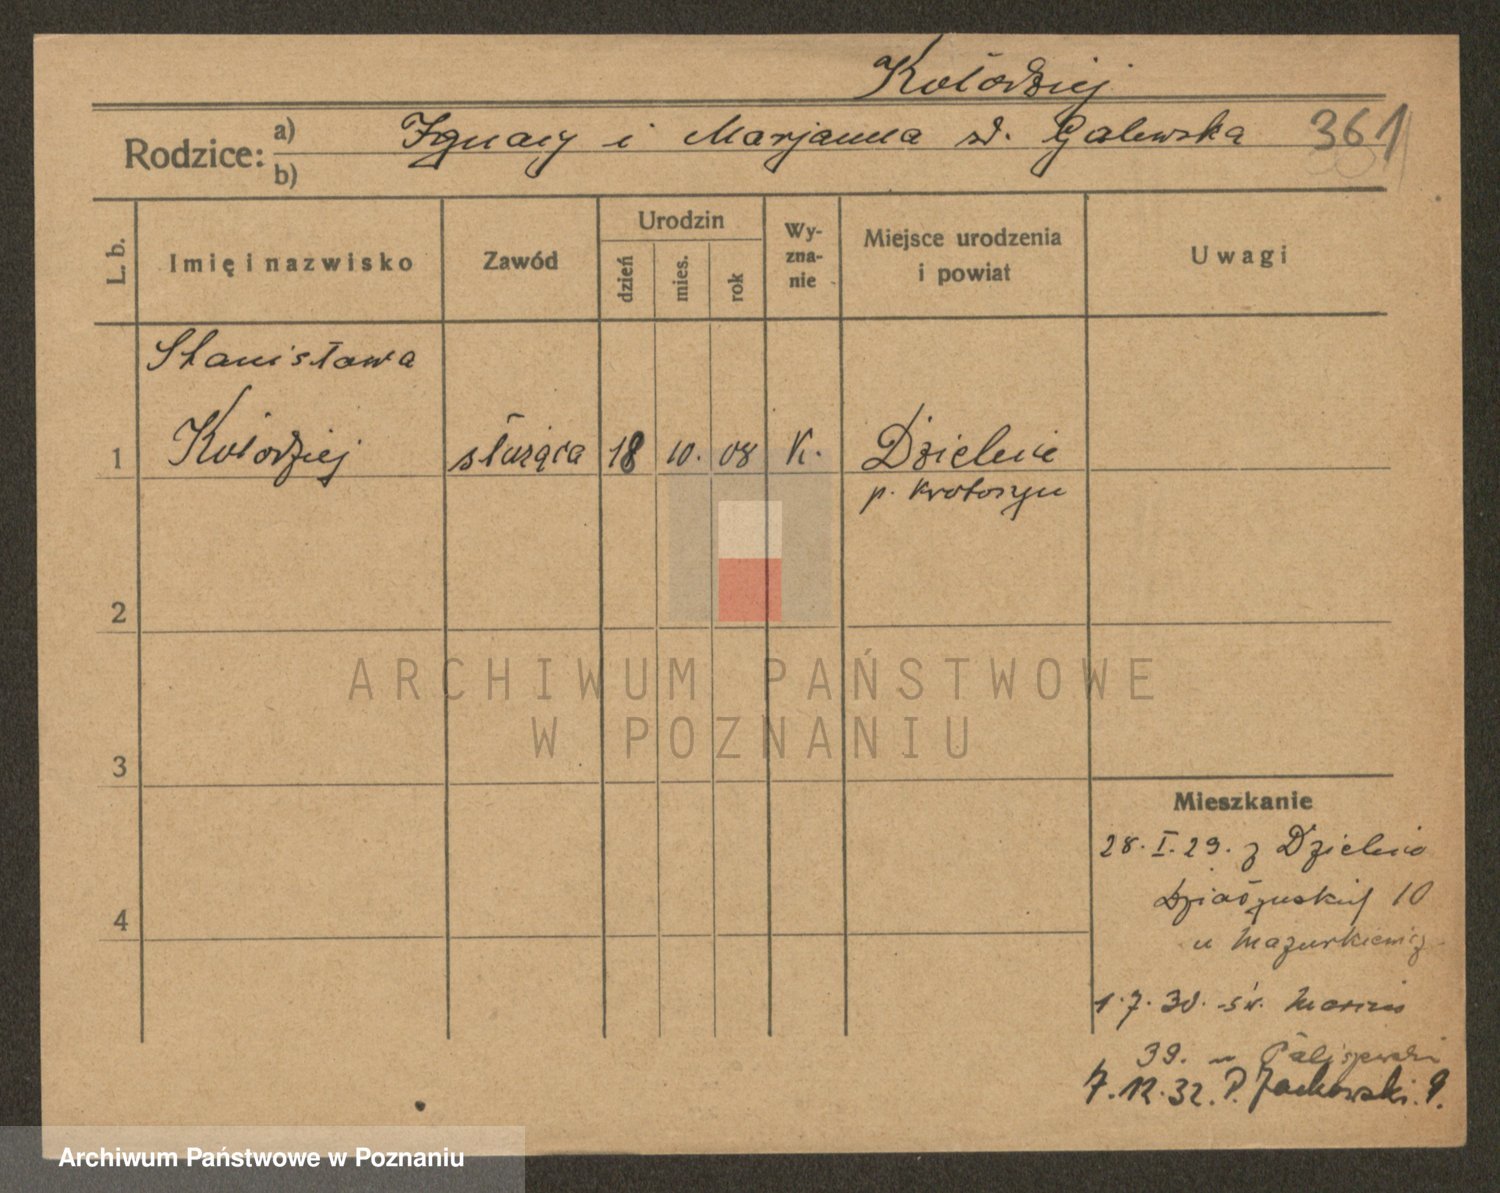 Kołodziej
Rodzice: a) Ignacy i Marjanna zd. Galewska 361
b)
L. b.
Imię i nazwisko
Zawód
Urodzin
dzień
mies.
rok
Wy-
zna-
nie
Miejsce urodzenia
i powiat
Uwagi
Stanisława
1 Kołodziej służąca 18 10. 08 K. Dzielnice
p. Krotoszyn
2
3
4
Mieszkanie
28. I. 29. z Dzielnic
Działyńskich 10
u Mazurkiewicz
1. 7. 30. św. Marcin
39. u
7. 12. 32. P. Jackowski. 9.
ARCHIWUM PAŃSTWOWE
W POZNANIU
Archiwum Państwowe w Poznaniu